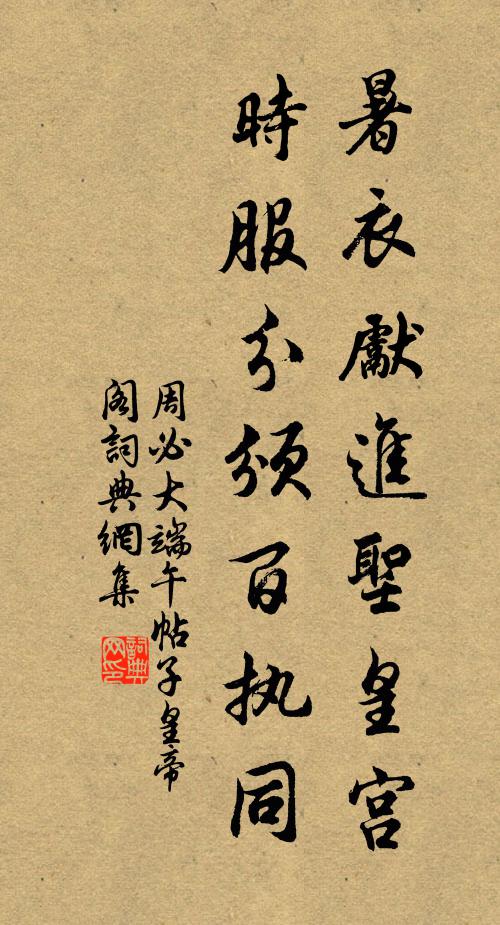 暑衣獻進聖皇宮
時服分頒百执同
周必大端午帖子皇帝
阁詞典網集
詞典网印